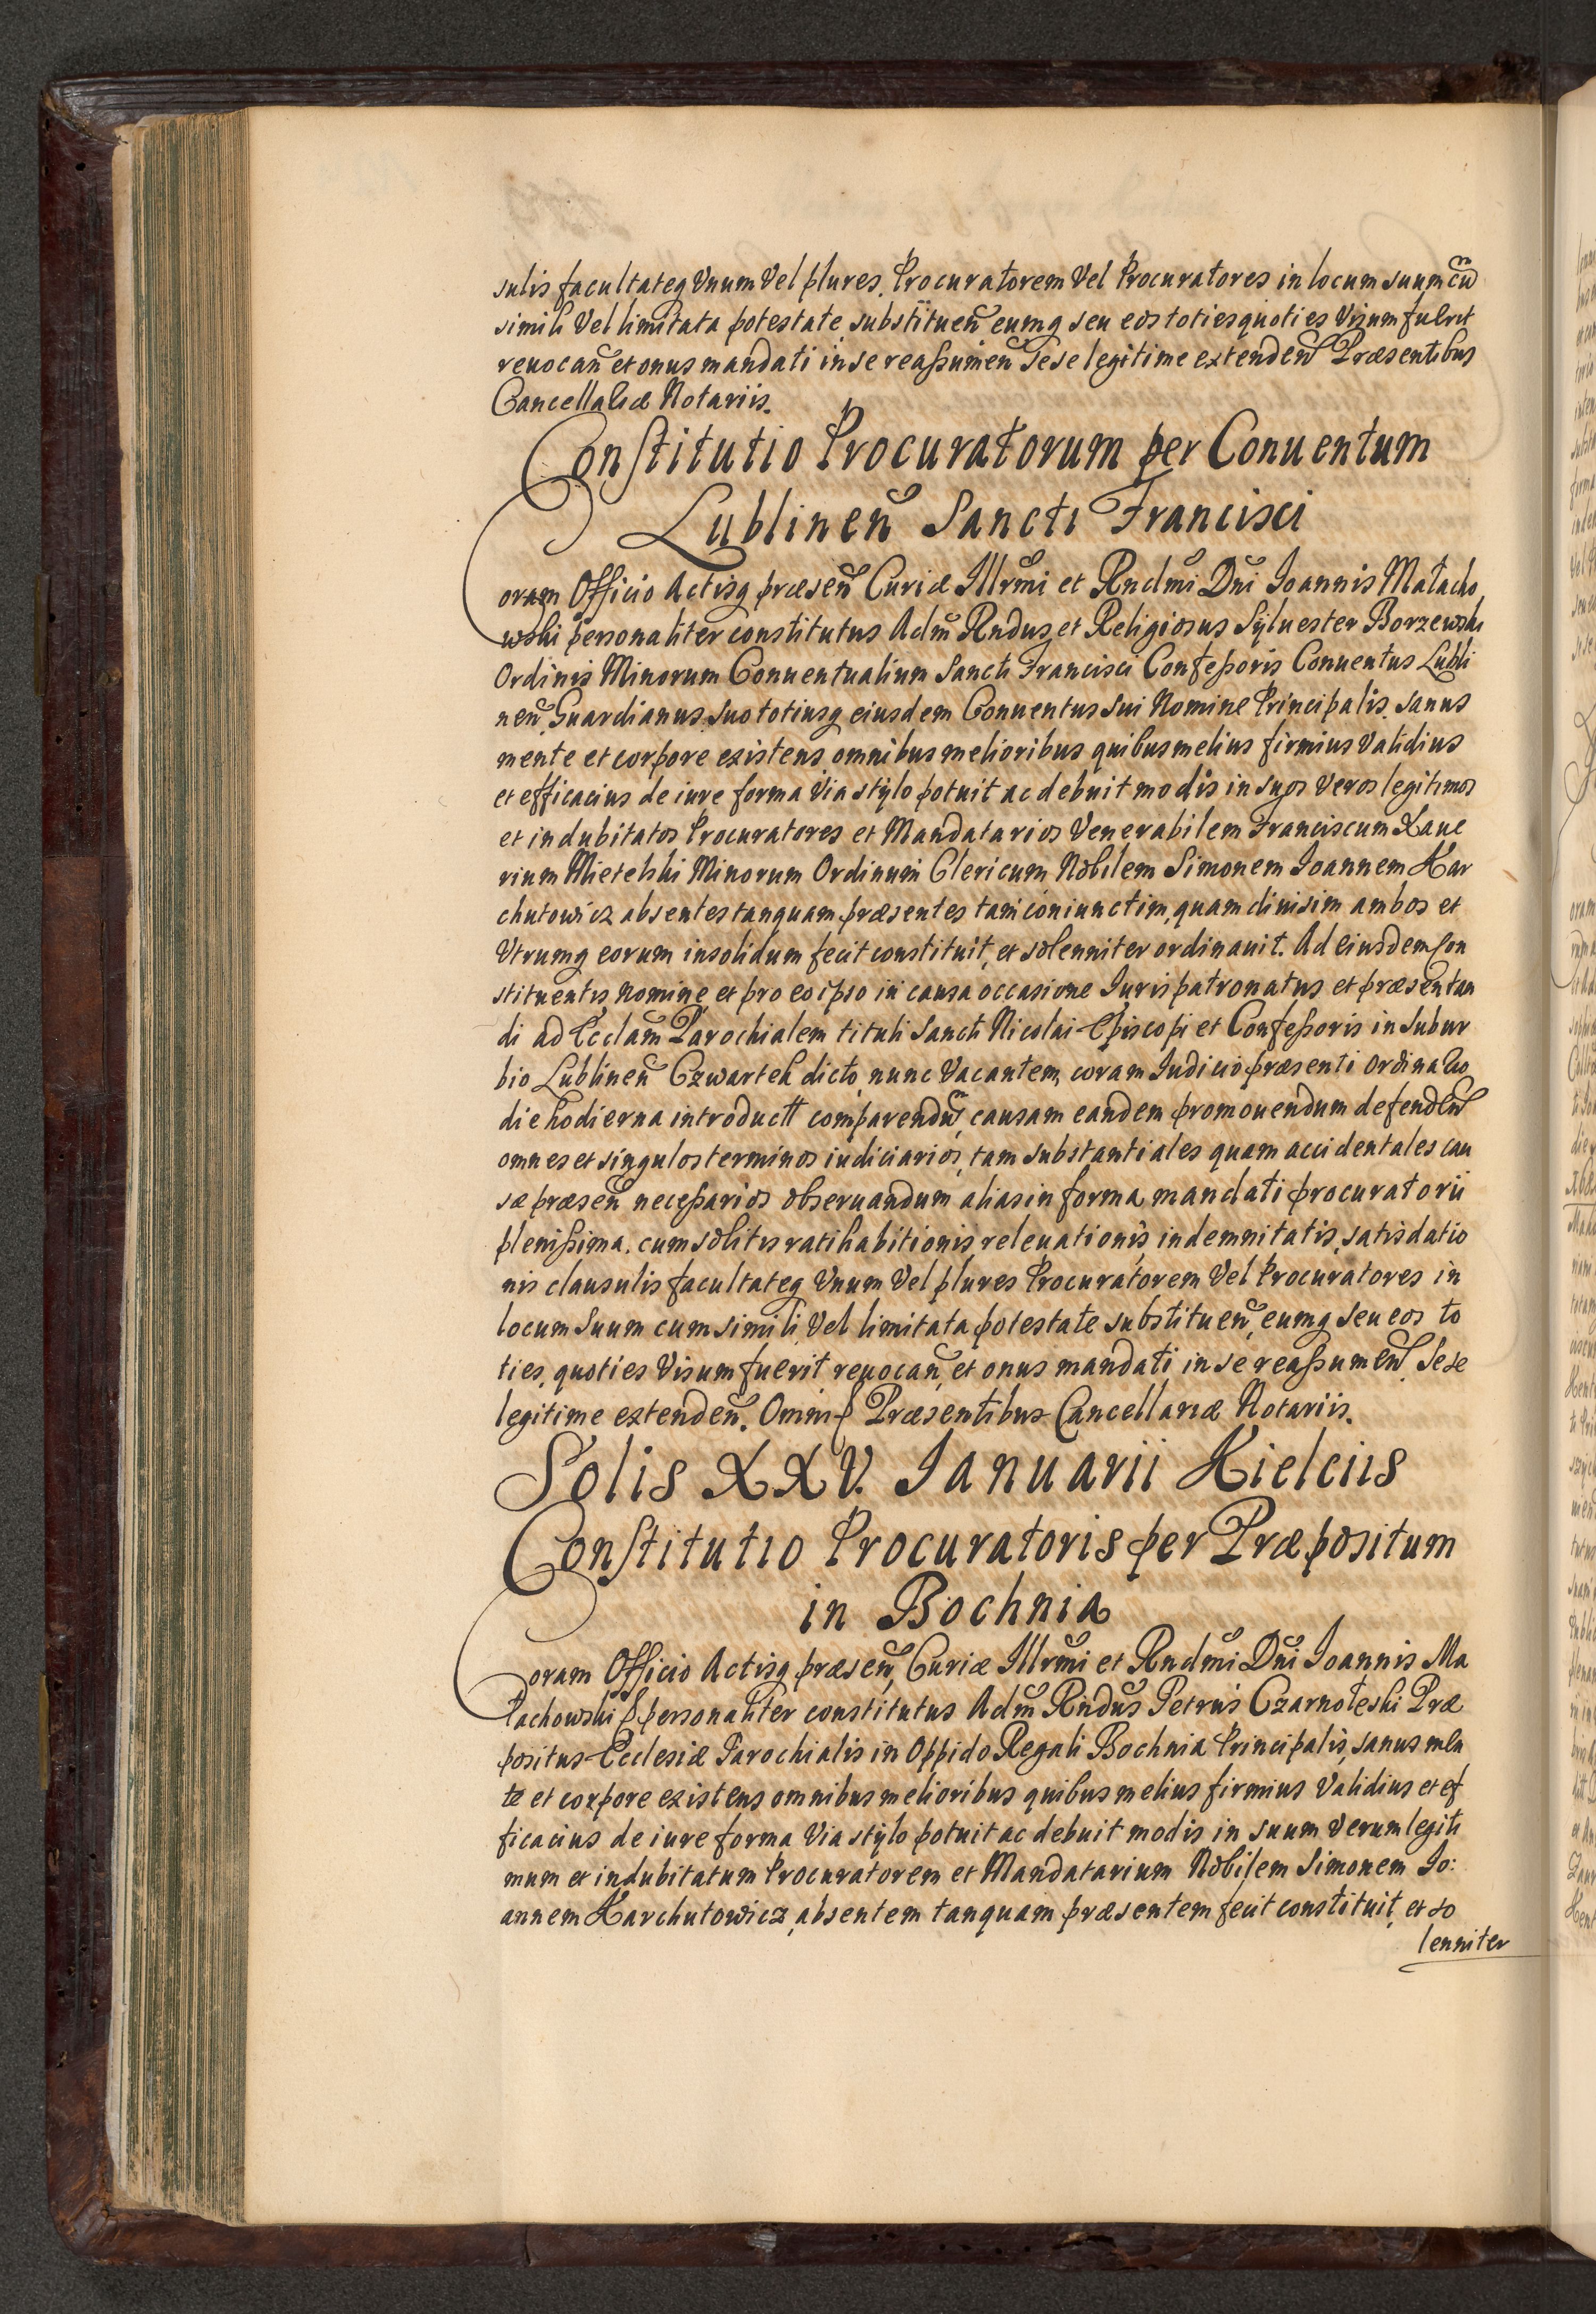 sulis facultateq Vnum Vel plures Procuratorem Vel Procuratores in locum suum cũ
simili Vel limitata potestate substituen̄ eumq seu eos toties quoties Visum fuerit
reuocan̄ et onus mandati in se reaßumen̄ Sese legitime extenden̄ Præsentibus
Cancellariæ Notariis.
Constitutio Procuratorum per Conuentum
Lublinen̄ Sancti Francisci
Coram Officio Actisq præsen̄ Curiæ Illr̄mi et Rndm̄i Dn̄i Ioannis Małacho
wski personaliter constitutus Adm̄ Rndus et Religiosus Sylvester Borzewski
Ordinis Minorum Conuentualium Sancti Francisci Confeßoris Conuentus Lubli
nen̄ Guardianus suo totiusq eiusdem Conuentus sui Nomine Principalis sanus
mente et corpore existens omnibus melioribus quibus melius firmius Validius
et efficacius de iure forma Via stylo potuit ac debuit modis in suos Veros legitimos
et indubitatos Procuratores et Mandatarios Venerabilem Franciscum Xaue
rium Mietelski Minorum Ordinum Clericum, Nobilem Simonem Ioannem Kar
chutowicz absentes tanquam præsentes tam coniunctim, quam diuisim ambos et
Vtrumq eorum insolidum fecit constituit, et solenniter ordinauit. Ad eiusdem Con
stituentis Nomine et pro eo ipso in causa occasione Iuris patronatus et præsentan
di ad Eccl̄am Parochialem tituli Sancti Nicolai Episcopi et Confeßoris in Subur
bio Lublinen̄ Czwartek dicto, nunc Vacantem, coram Iudicio præsenti ordinario
die hodierna introductt comparendũ, causam eandem promouendum defenden̄
omnes et singulos terminos iudiciarios, tam substantiales quam accidentales cau
sæ præsen̄ neceßarios obseruandum alias in forma mandati procuratorii
plenißima. cum solitis ratihabitionis, releuationis, indemnitatis, satisdatio
nis clausulis facultateq Vnum Vel plures Procuratorem Vel Procuratores in
locum Suum cum simili Vel limitata potestate substituen̄, eumq seu eos to
ties, quoties Visum fuerit reuocan̄, et onus mandati in se reaßumen̄. Sese
legitime extenden̄. Omni Præsentibus Cancellariæ Notariis.
Solis XXV. Ianuarii Kielciis
Constitutio Procuratoris per Præpositum
in Bochnia
Coram Officio Actisq præsen̄, Curiæ Illr̄mi et Rndm̄i Dn̄i Ioannis Ma
łachowski personaliter constitutus Adm̄ Rndus Petrus Czarnoleski Præ
positus Ecclesiæ Parochialis in Oppido Regali Bochnia Principalis, sanus men
te et corpore existens omnibus melioribus quibus melius firmius Validius et ef
ficacius de iure forma Via stylo potuit ac debuit modis in suum Verum legiti
mum et indubitatum Procuratorem et Mandatarium Nobilem Simonem Io:
annem Karchutowicz, absentem tanquam præsentem fecit constituit, et so
lenniter